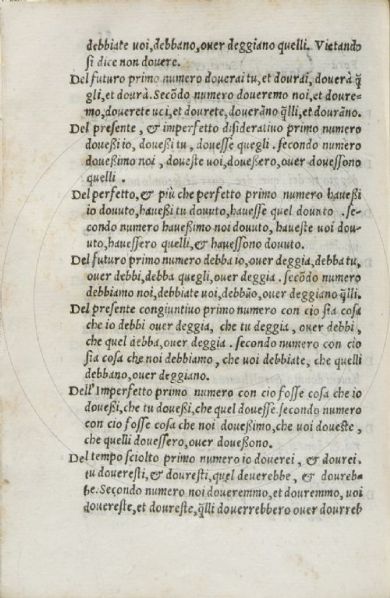 debbiate voi, debbano, ouer deggiano quelli. Vietando
si dice non douere.
Del futuro primo numero douerai tu, et dourai, douerà q̃
gli, et dourà. Secõdo numero doueremo noi, et doure-
mo, douerete uci, et dourete, douerãno q̃lli, et dourãno.
Del presente, & imperfetto disiderativo primo numero
doueßi io, doueßi tu, douesse quegli. secondo numero
doueßimo noi, doueste uoi, doueßero, ouer douessono
quelli.
Del perfetto, & più che perfetto primo numero haueßi
io douuto, haueßi tu douuto, hauesse quel douuto. se-
condo numero haueßimo noi douuto, haueste uoi dou-
uto, hauessero quelli, & hauessono douuto.
Del futuro primo numero debba io, ouer deggia, debba tu,
ouer debbi, debba quegli, ouer deggia. secõdo numero
debbiamo noi, debbiate uoi, debbão, ouer deggiano q̃lli.
Del presente congiuntiuo primo numero con cio sia cosa
che io debbi ouer deggia, che tu deggia, ouer debbi,
che quel debba, ouer deggia. secondo numero con cio
sia cosa che noi debbiamo, che uoi debbiate, che quelli
debbano, ouer deggiano.
Dell'Imperfetto primo numero con cio fosse cosa che io
doueßi, che tu doueßi, che quel douesse. secondo numero
con cio fosse cosa che noi doueßimo, che uoi doueste,
che quelli douessero, ouer doueßono.
Del tempo sciolto primo numero io douerei, & dourei.
tu doueresti, & douresti, quel deuerebbe, & doureb-
be. Secondo numero noi doueremmo, et douremmo, uoi
douereste, et doureste, q̃lli douerrebbero ouer dourreb